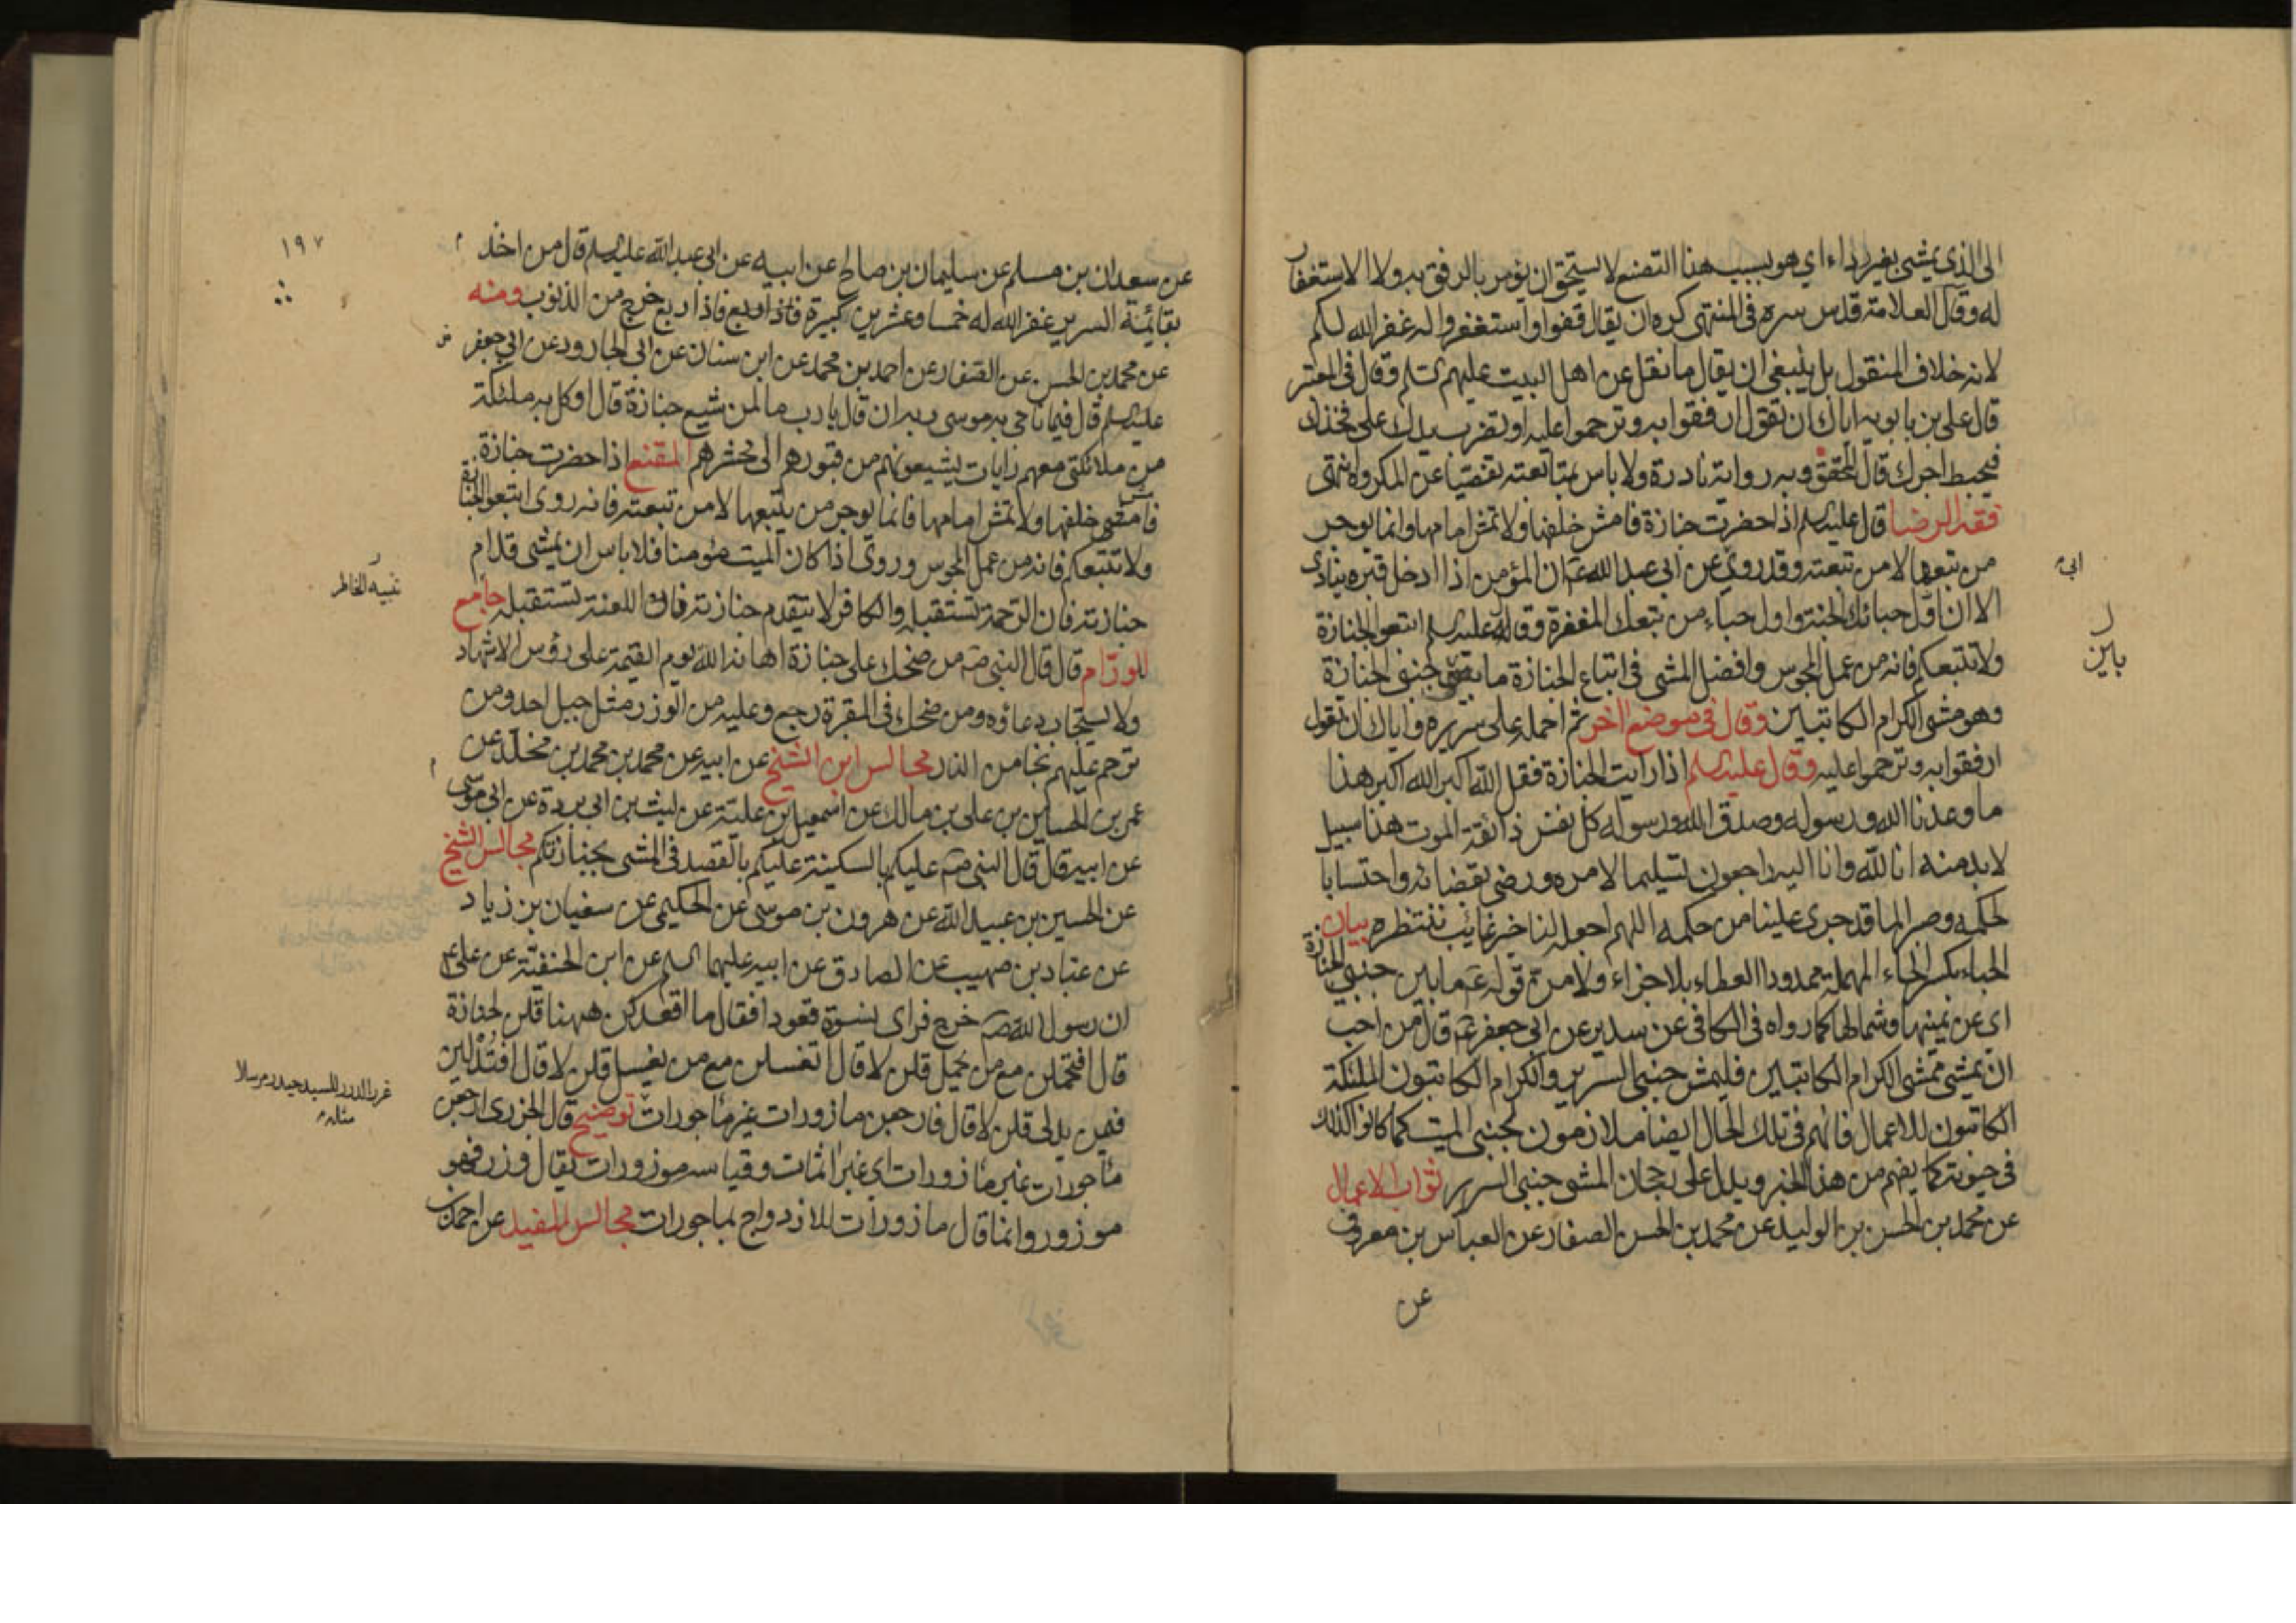 الى الذي يمشي بغير رداء اي هو بسبب هذا التصنع لا يستحق ان يؤمر بالرفق به ولا الاستغفار
له وقال العلامة قدس سره في المنتهى كره ان يقال قفوا واستغفروا له غفر الله لكم
لانه خلاف المنقول بل ينبغي ان يقال ما نقل عن اهل البيت عليهم السلم وقال في المعتبر
قال علي بن بابويه اياك ان تقول ارفقوا به وترحموا عليه او تضرب يدك على فخذك
فيحبط اجرك قال المحقق وبه رواية نادرة ولا باس بمتابعته تفصيا عن المكروه انتهى
فقه الرضا قال عليه السلم اذا حضرت جنازة فامش خلفها ولا تمش امامها وانما يوجر
من تبعها لا من تبعته وقد روي عن ابي عبد الله ع ان المؤمن اذا ادخل قبره ينادى
الا ان اول حبائك الجنة واول حباء من تبعك المغفرة وقال عليه السلم اتبعوا الجنازة
ولا تتبعكم فانه من عمل المجوس وافضل المشي في اتباع الجنازة ما بين جنبي الجنازة
وهو مشي الكرام الكاتبين وقال في موضع اخر ثم احمله على سريره واياك ان تقول
ارفقوا به وترحموا عليه وقال عليه السلم اذا رايت الجنازة فقل الله اكبر الله اكبر هذا
ما وعدنا الله ورسوله وصدق الله ورسوله كل نفس ذائقة الموت هذا سبيل
لا بد منه انا لله وانا اليه راجعون تسليما لامره ورضى بقضائه واحتسابا
لحكمه وصبرا لما قد جرى علينا من حكمه اللهم اجعله لنا خير غائب ننتظره بيان
الحباء بكسر الحاء المهملة ممدودا العطاء بلا جزاء ولا من قوله ع ما بين جنبي الجنازة
اي عن يمينها وشمالها كما رواه في الكافي عن سدير عن ابي جعفر ع قال من احب
ان يمشي ممشى الكرام الكاتبين فليمش جنبي السرير والكرام الكاتبون الملئكة
الكاتبون للاعمال فانهم في تلك الحال ايضا ملازمون لجنبي الميت كما كانوا كذلك
في حيوته كما يفهم من هذا الخبر ويدل على رجحان المشي جنبي السرير ثواب الاعمال
عن محمد بن الحسن بن الوليد عن محمد بن الحسن الصفار عن العباس بن معروف
عن
ابي
ر
باين
١٩٧
عن سعدان بن مسلم عن سليمان بن صالح عن ابيه عن ابي عبد الله عليه السلم قال من اخذ
بقائمة السرير غفر الله له خمسا وعشرين كبيرة فاذا ربع خرج من الذنوب ومنه
عن محمد بن الحسن عن الصفار عن احمد بن محمد عن ابن سنان عن ابي الجارود عن ابي جعفر
عليه السلم قال فيما ناجى به موسى ربه ان قال يا رب ما لمن شيع جنازة قال اوكل به ملئكة
من ملائكتي معهم رايات يشيعونهم من قبورهم الى محشرهم المقنع اذا حضرت جنازة
فامش خلفها ولا تمش امامها فانما يوجر من يتبعها لا من تبعته فانه روي اتبعوا الجنازة
ولا تتبعكم فانه من عمل المجوس وروي اذا كان الميت مؤمنا فلا باس ان يمشى قدام
جنازته فان الرحمة تستقبله والكافر لا تتقدم جنازته فان اللعنة تستقبله جامع
للورام قال قال النبي ص من ضحك على جنازة اهانه الله يوم القيمة على رؤس الاشهاد
ولا يستجاب دعاؤه ومن ضحك في المقبرة رجع وعليه من الوزر مثل جبل احد ومن
ترحم عليهم نجا من النار مجالس ابن الشيخ عن ابيه عن محمد بن محمد بن مخلد عن
عمر بن الحسين بن علي بن مالك عن اسمعيل بن علية عن ليث بن ابي بردة عن ابي موسى
عن ابيه قال قال النبي ص عليكم بالسكينة عليكم بالقصد في المشي بجنازتكم مجالس الشيخ
عن الحسين بن عبيد الله عن هرون بن موسى عن الحكيمي عن سفيان بن زياد
عن عباد بن صهيب عن الصادق عن ابيه عليهما السلم عن ابن الحنفية عن علي ع
ان رسول الله ص خرج فراى نسوة قعودا فقال ما اقعدكن ههنا قلن لجنازة
قال افتحملن مع من يحمل قلن لا قال اتغسلن مع من يغسل قلن لا قال افتدلين
فيمن يدلي قلن لا قال فارجعن مازورات غير ماجورات توضيح قال الجزري ارجعن
ماجورات غير مازورات اي غير اثمات وقياسه موزورات يقال وزر فهو
موزور وانما قال مازورات للازدواج بماجورات مجالس المفيد عن احمد بن
تنبيه الخاطر
غرر الدرر للسيد حيدر مرسلا
مثله